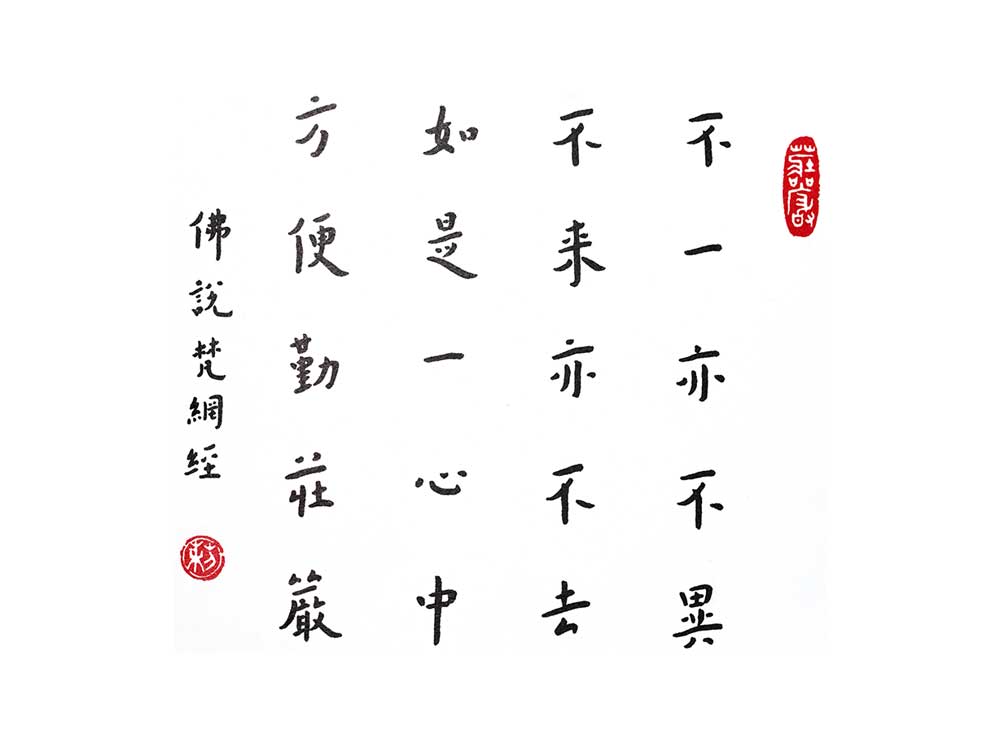 莊嚴
不一亦不異
不来亦不去
如是一心中
方便勤莊嚴
佛說梵網經